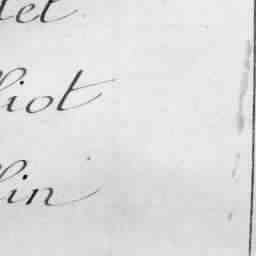 let
liot
lin